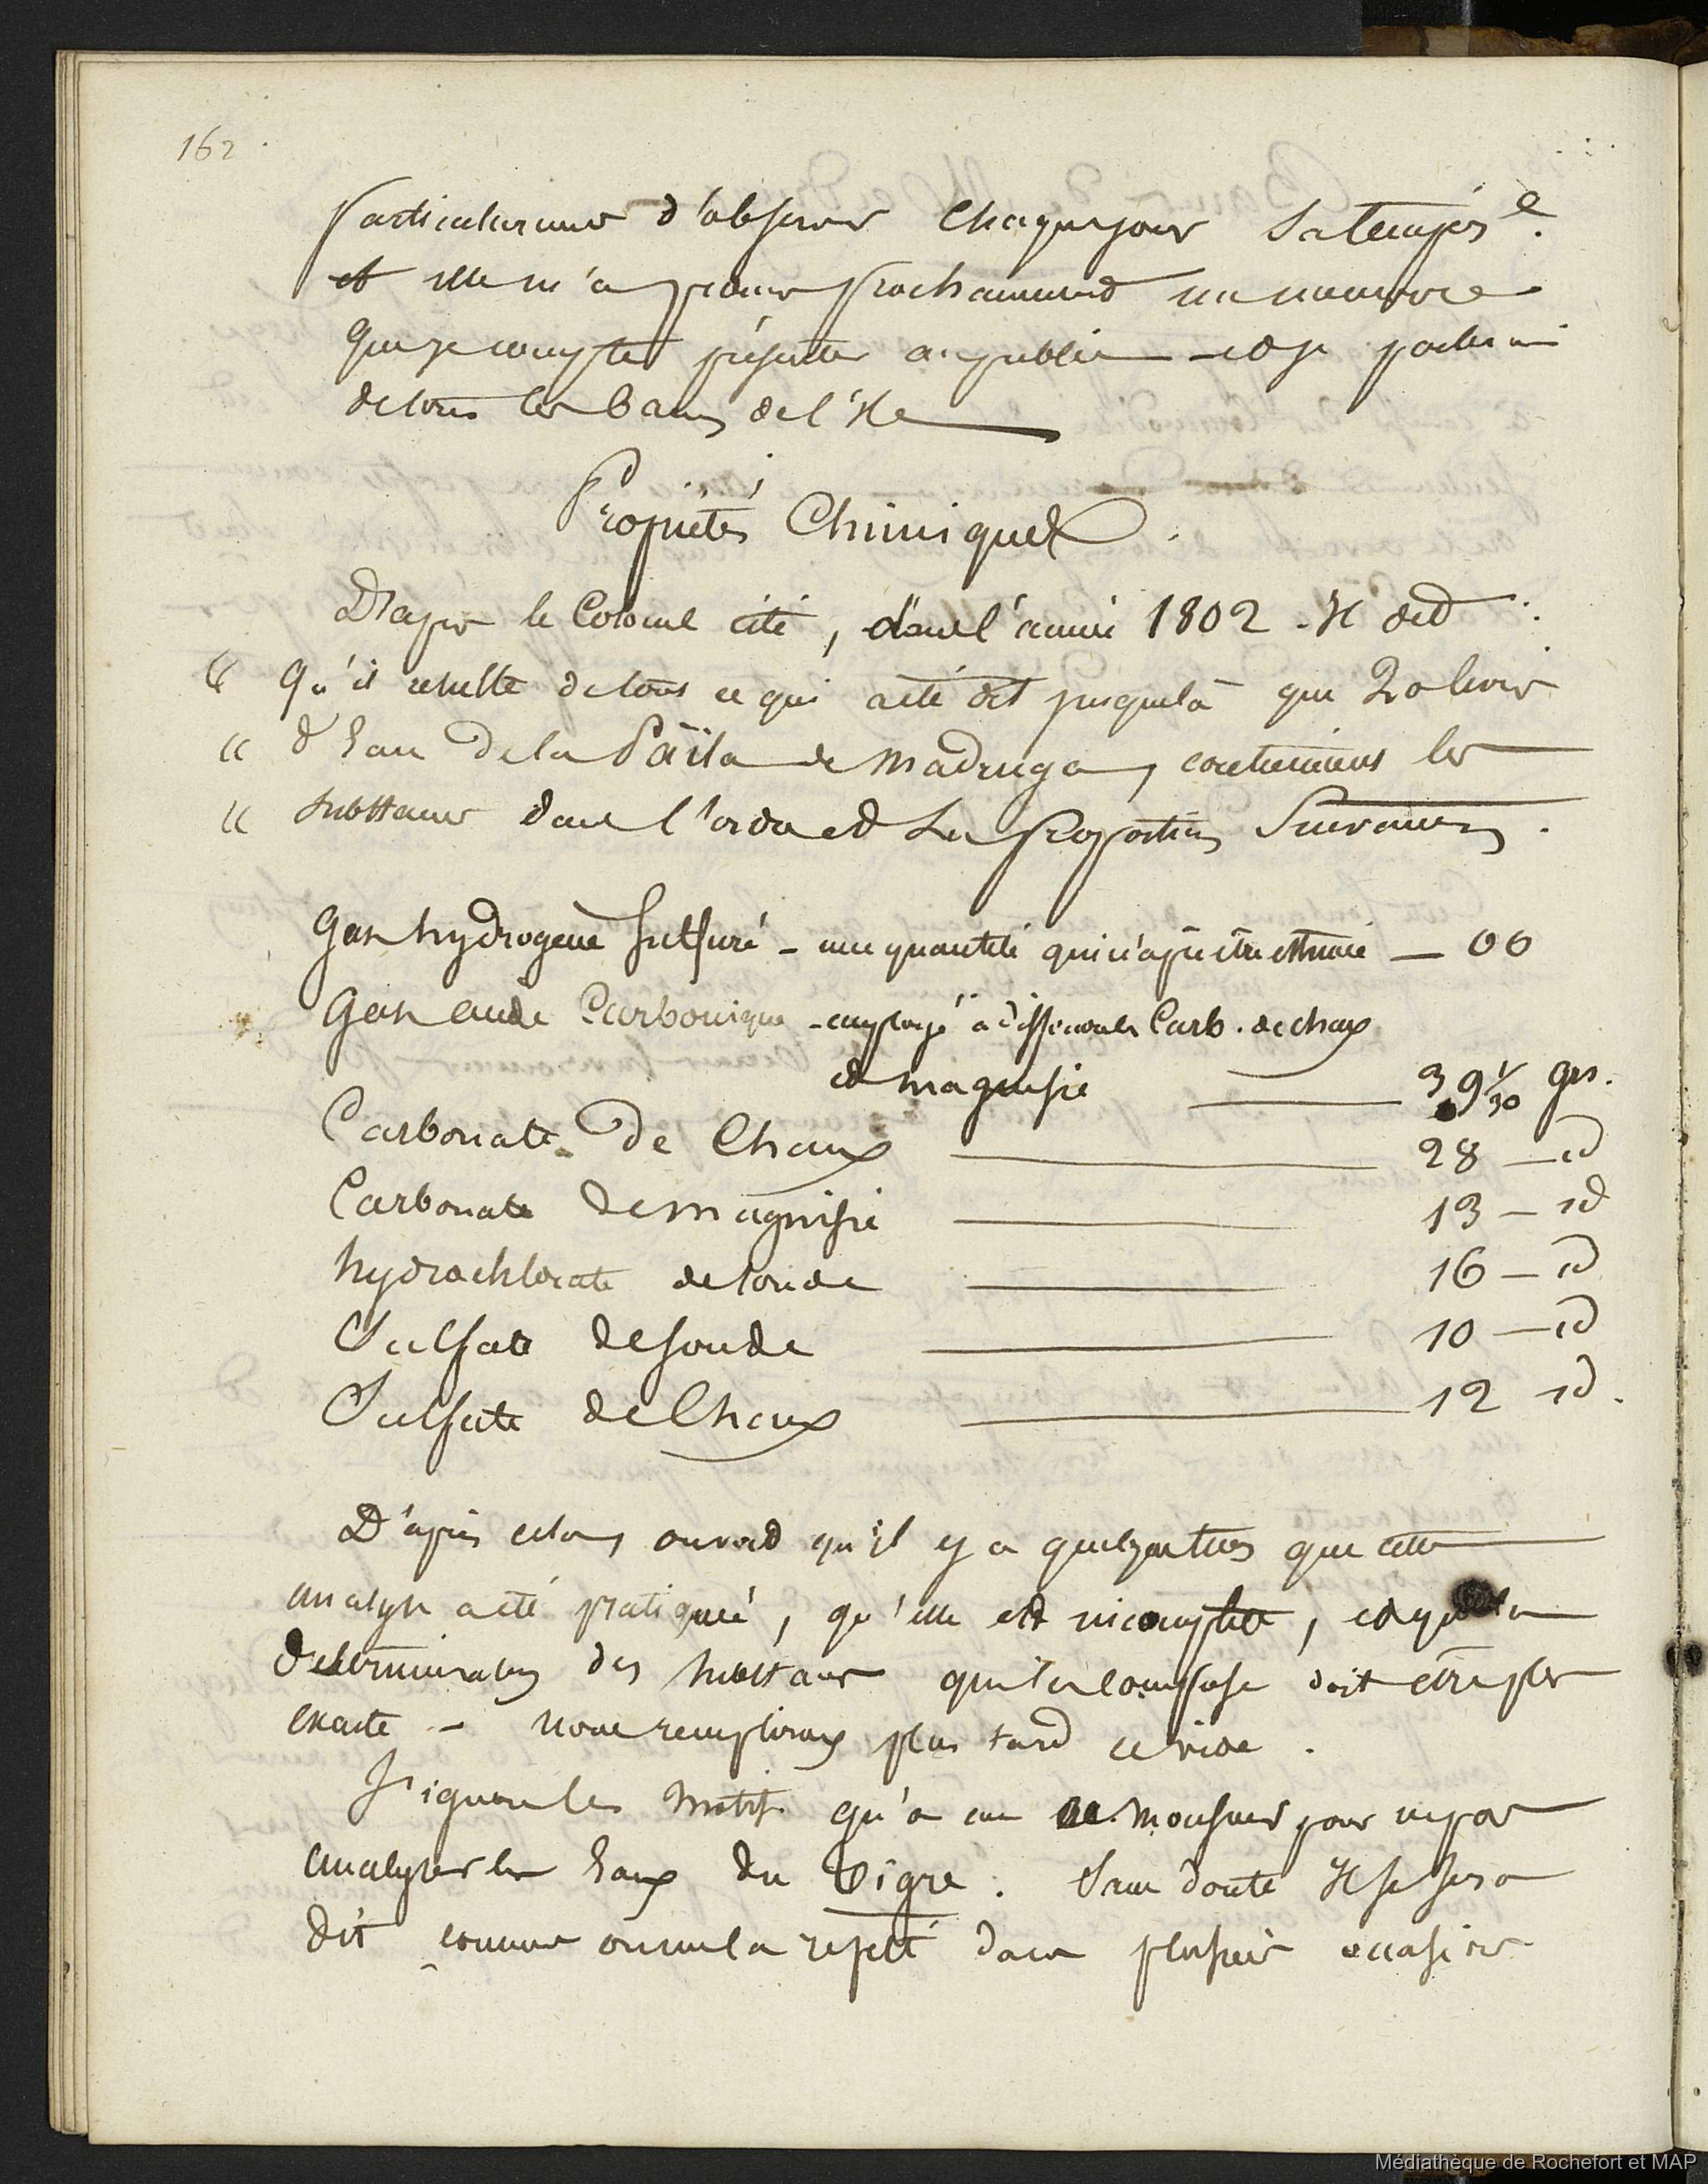 162
particulierement d'observer chaque jour sa tempér.e
et elle m'a promis prochainement un memoire
que je compte présenter au public et je parlerai
de tous les bains de l'ile
Propriétés Chimiques.
D'apres le Colonel cité, dans l'année 1802. Il dit :
« Qu'il resulte de tous ce qui a été dit jusque là que 20 livres
« d'Eau de la Païla de Madruga, contiennent les
« substances dans l'ordre et les proportions Suivantes.
Gas hydrogène sulfuré - une quantité qui n'a pu être estimée — 00
Gas acide Carbonique - employé à dissoudre les Carb. de chaux
et magnesie — 39 1/30 grs.
Carbonate de Chaux — 28 — id
Carbonate de magnisie — 13 — id
hydrochlorate de soude — 16 — id
Sulfate de soude — 10 — id
Sulfate de Chaux — 12 id.
D'après cela, on voit qu'il y a quelque tems que cette
analyse a été pratiquée, qu'elle est incomplette, et que la
determination des substances qui la compose doit être plus
exacte - nous remplirons plus tard ce vide.
J'ignore les motifs qu'a eu ce monsieur pour ne pas
analyser les Eaux du Tigre. Sans doute Il se sera
dit comme on me l'a repeté dans plusieurs occasions
Médiathèque de Rochefort et MAP